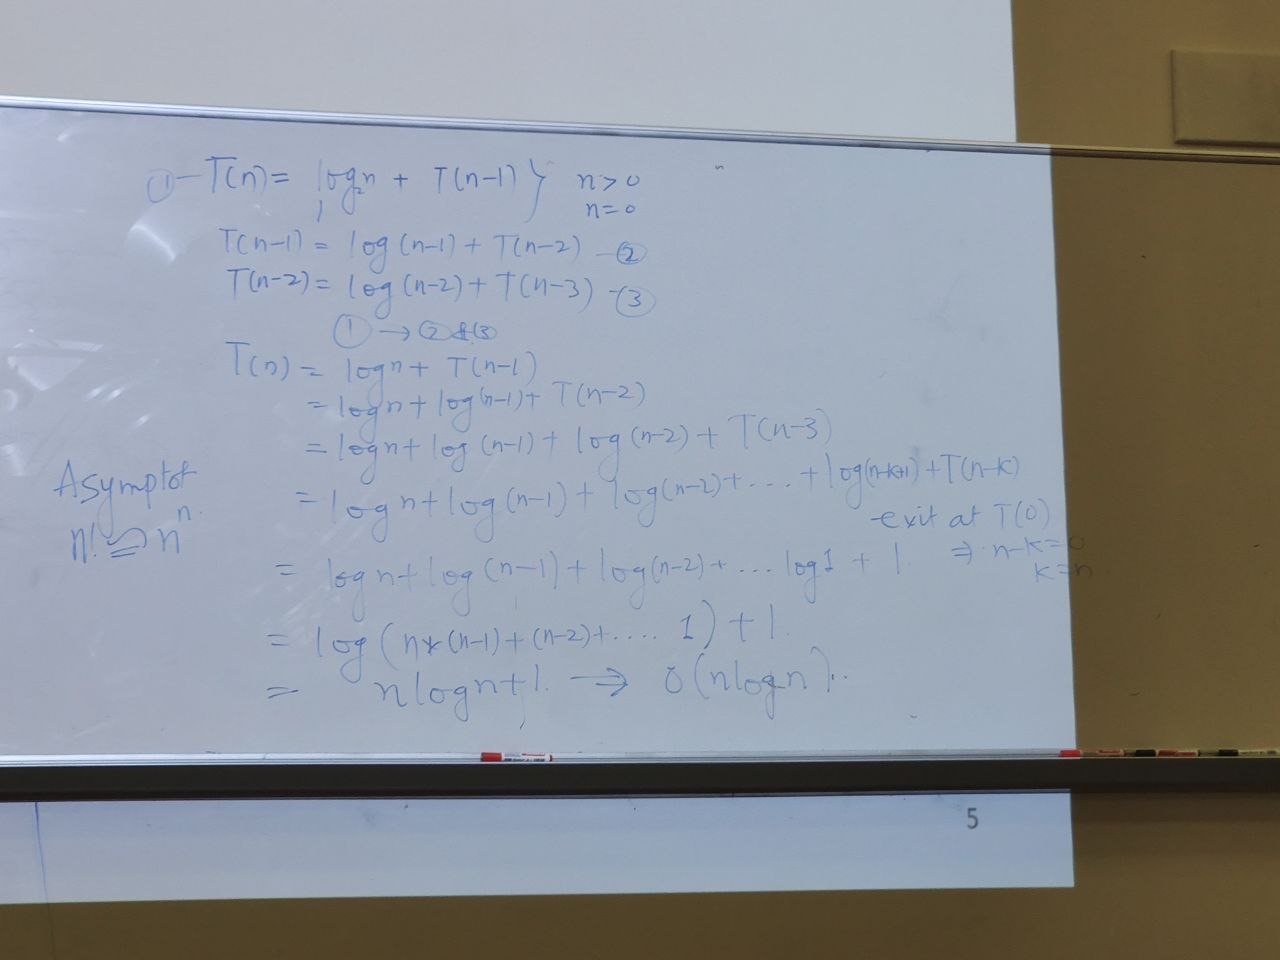 ① - T(n) = log₂n + T(n-1) } n>0
1 n=0
T(n-1) = log(n-1) + T(n-2) - ②
T(n-2) = log(n-2) + T(n-3) - ③
① → ② & ③
T(n) = logn + T(n-1)
= logn + log(n-1) + T(n-2)
= logn + log(n-1) + log(n-2) + T(n-3)
= logn + log(n-1) + log(n-2) + ... + log(n-k+1) + T(n-k)
- exit at T(0)
= logn + log(n-1) + log(n-2) + ... log1 + 1. ⇒ n-k=0
k=n
= log(n*(n-1)+(n-2)+.... 1) + 1.
= nlogn+1. ⇒ O(nlogn).
Asymptot
n! ≅ nⁿ.
5